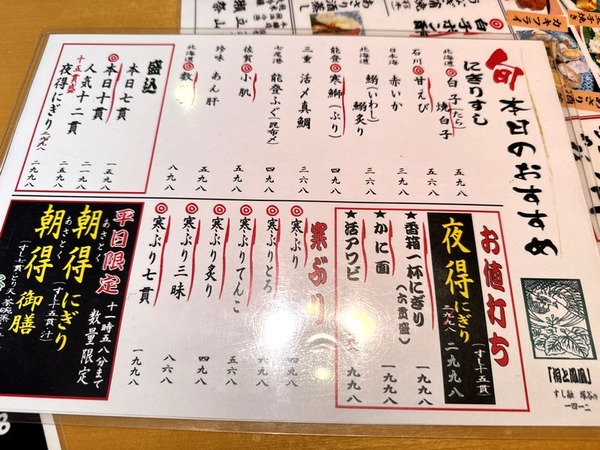 旬 本日のおすすめ
にぎりすし
北海道 ◎白子(たら) 焼白子 五九八
石川 ◎甘えび 五六八
日本海 赤いか 三九八
北海道 鰯(いわし) 鰯炙り 三六八
能登 ◎寒鰤(ぶり) 四九八
三重 活〆真鯛 三六八
七尾港 能登ふぐ(昆布〆) 四九八
佐賀 ◎小肌
珍味 あん肝
北海道 ◎数の子 八九八
盛込
本日七貫
◎本日十貫 一五九八
人気十二貫 二一九八
十五貫盛 夜得にぎり 二九九八
お値打ち
夜得にぎり(すし十五貫)
二九九八 二九九八
★香箱一杯にぎり(六貫盛) 一九九八
★かに面 一九九八
★活アワビ
寒ぶり
◎寒ぶり 四九八
◎寒ぶりとろ 六九八
◎寒ぶりてんこ 五六八
◎寒ぶり炙り 四九八
◎寒ぶり三昧 八六八
◎寒ぶり七貫
平日限定
十一時五八分まで
数量限定
あさとく
朝得にぎり(すし十五貫・汁)
あさとく
朝得御膳
カキフライ